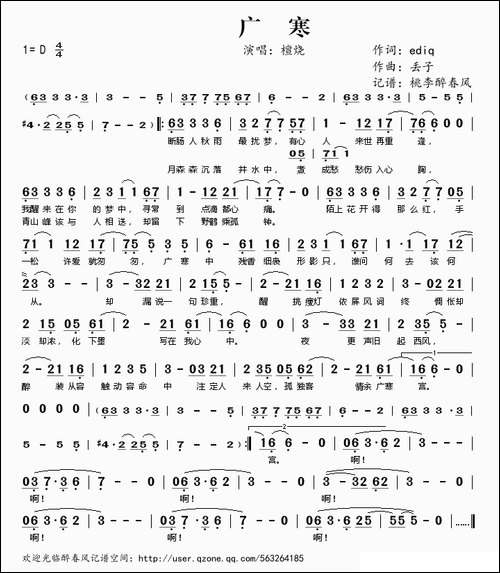 广 寒
1=D 4/4 演唱：檀烧 作词：ediq
作曲：丢子
记谱：桃李醉春风
(63 3 3·3 | 3 - - 5 | 37 77 75 67 | 6 - - 2 | 63 3 3·3 | 3 - - 5 |
#4·2 25 5 | 7 - - 2) ‖: 63 33 36 | 32 77 57 | 1 - 12 17 | 76 6 0 0 |
断肠人秋雨 最扰梦，有心 人 来世再重 逢，
05 | 71 1
月森森沉落 井水中， 激 成愁 愁伤入心 胸，
63 33 36 | 23 11 67 | 1 - 22 12 | 17 7 - 0 | 63 33 36 | 32 77 05 |
我醒来在你 的梦中，寻常 到 点滴都心 痛。 陌上花开得 那么红， 手
青山峰该与 人相送，却留 下 野鹤乘孤 钟。
71 1 12 17 | 75 5 35 | 6 - 22 12 | 35 5 61 | 1·1 17 12 |
一松 许爱就匆 匆，广寒 中 残香细袅 形影只，谁问 何去该何
23 3 - - | 3 - 32 21 | 23 5 - - | 2 - 21 16 | 23 5 35 | 5 - 23 21 |
从。 却 漏说一 句珍重， 醒 挑瘦灯 依屏风词 终 惆怅却
2 15 05 61 | 2 - 21 16 | 6 - - 0 | 3 - 33 21 | 2 35 5 - |
淡却浓，化下墨 写在我心 中。 夜 更声旧 起西风，
2 - 21 16 | 2 35 5 61 | 2 - 21 16 | 2 15 05 61 | 2 - 21 16 | 6 - - 0 |
醉 装从容 触动容命 中 注定人 来人空，孤独寒 情永广寒 宫。
0 0 0 0 | (63 3 3·3 | 3 - - 5 | 37 77 75 67 | 6 - - 2 | 63 3 3·3 |
5 - - 5 | #4·2 25 5 | 7 - - 2) :‖ 16 6 - 0 | 06 3·6 2 | 3 - - - |
宫。 啊！
03 7·3 6 | 7 - - - | 06 3·6 2 | 3 - - - | 3 - 32 62 | 3 - - - |
啊！ 啊！ 啊！
06 3·6 2 | 3 - - - | 06 3·6 25 | 5 - 55 5 | 5 - - 0 |……‖
啊！ 啊！
欢迎光临醉春风记谱空间：http://user.qzone.qq.com/563264185